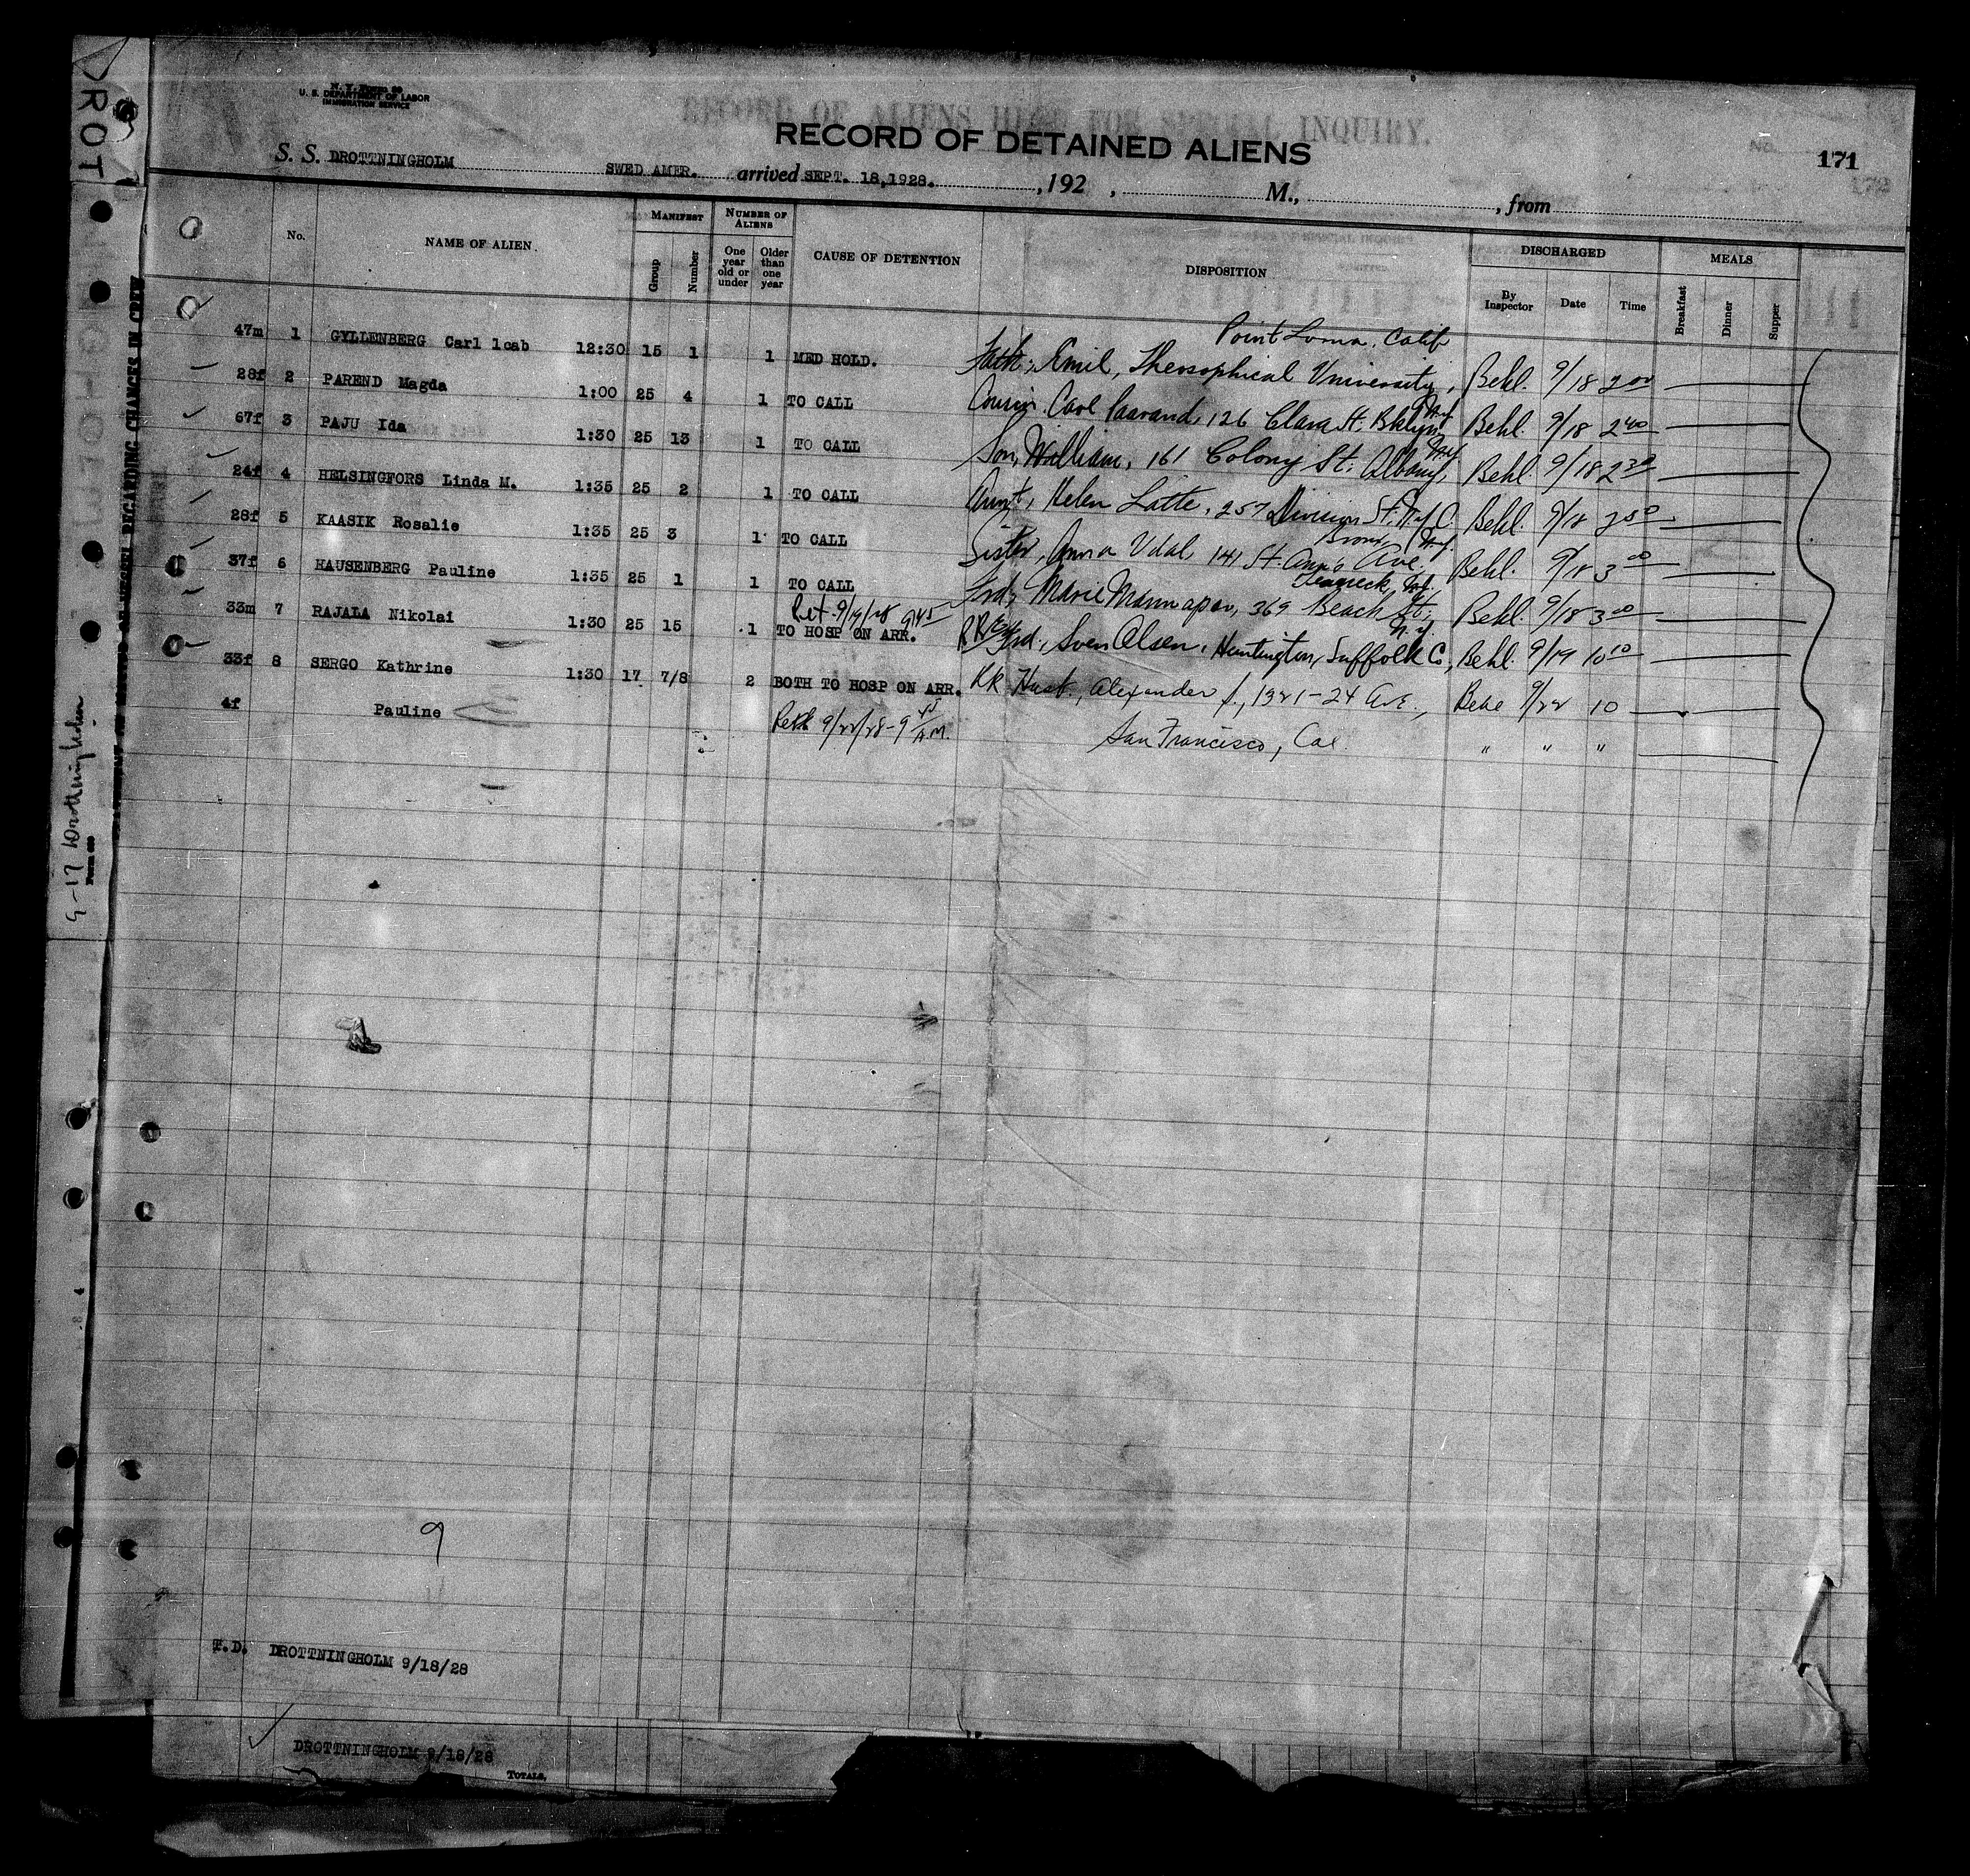 N. Y. Form 99
U. S. DEPARTMENT OF LABOR
IMMIGRATION SERVICE
RECORD OF ALIENS HELD FOR SPECIAL INQUIRY.
RECORD OF DETAINED ALIENS
171
172
S. S. DROTTNINGHOLM SWED AMER. arrived SEPT. 18,1928. , 192 , M., , from
No. NAME OF ALIEN. MANIFEST Group Number NUMBER OF ALIENS One year old or under Older than one year CAUSE OF DETENTION DISPOSITION DISCHARGED By Inspector Date Time MEALS Breakfast Dinner Supper
Point Loma, Calif
47m 1 GYLLENBERG Carl 12:30 15 1 1 MED HOLD. Fath; Emil, Theosophical University, Behl. 9/18 2 00
28f 2 PAREND Magda 1:00 25 4 1 TO CALL Cousin. Carl 126 Clara St. Bklyn N.Y. Behl. 9/18 2 40
67f 3 PAJU Ida 1:30 25 13 1 TO CALL Son, William, 161 Colony St. Albany, N.Y. Behl. 9/18 2 30
24f 4 HELSINGFORS Linda M. 1:35 25 2 1 TO CALL Aunt, Helen Latte, 257 Division St. N.Y.C. Behl. 9/18 2 50
Bronx, N.Y.
28f 5 KAASIK Rosalie 1:35 25 3 1 TO CALL Sister, Anna Udal, 141 St. Ann's Ave. Behl. 9/18 3 00
Teaneck N.J.
37f 6 HAUSENBERG Pauline 1:35 25 1 1 TO CALL Frd, Marie 369 Beach St; Behl. 9/18 3 00
Ret 9/19/28 9 45
N.Y.
33m 7 RAJALA Nikolai 1:30 25 15 1 TO HOSP ON ARR. Frd., Sven Olsen, Huntington, Suffolk Co, Behl. 9/19 10 10
33f 8 SERGO Kathrine 1:30 17 7/8 2 BOTH TO HOSP ON ARR. Husb. Alexander J., 1321-24 Ave., 9/22 10
4f Pauline 9/22/28-9 45 A.M. San Francisco, Cal. " " "
9
T.D. DROTTNINGHOLM 9/18/28
DROTTNINGHOLM 9/18/28
TOTALS.
DROT
9-17 Drottningholm